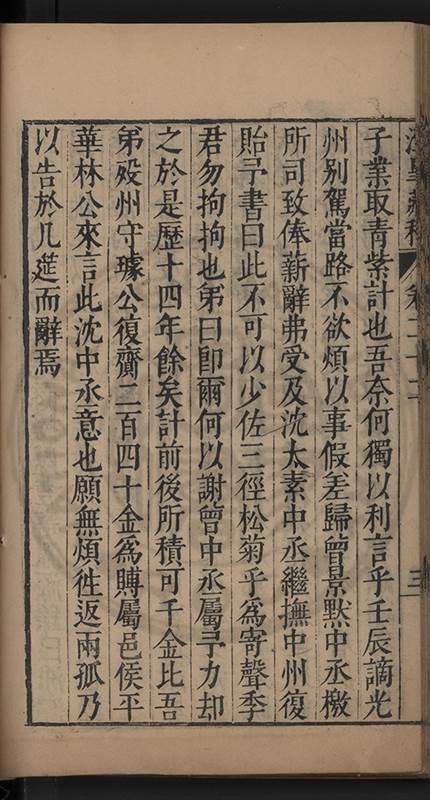 卷二十二
三
子業取青紫計也吾奈何獨以利言乎壬辰謫光
州别駕當路不欲煩以事假差歸曾景默中丞檄
所司致俸薪辭弗受及沈太素中丞繼撫中州復
貽予書曰此不可以少佐三徑松菊乎為寄聲季
君勿拘拘也弟曰即爾何以謝曾中丞屬予力却
之於是歷十四年餘矣計前後所積可千金比吾
弟殁州守璩公復齎二百四十金為賻屬邑侯平
華林公來言此沈中丞意也願無煩徃返兩孤乃
以告於几筵而辭焉